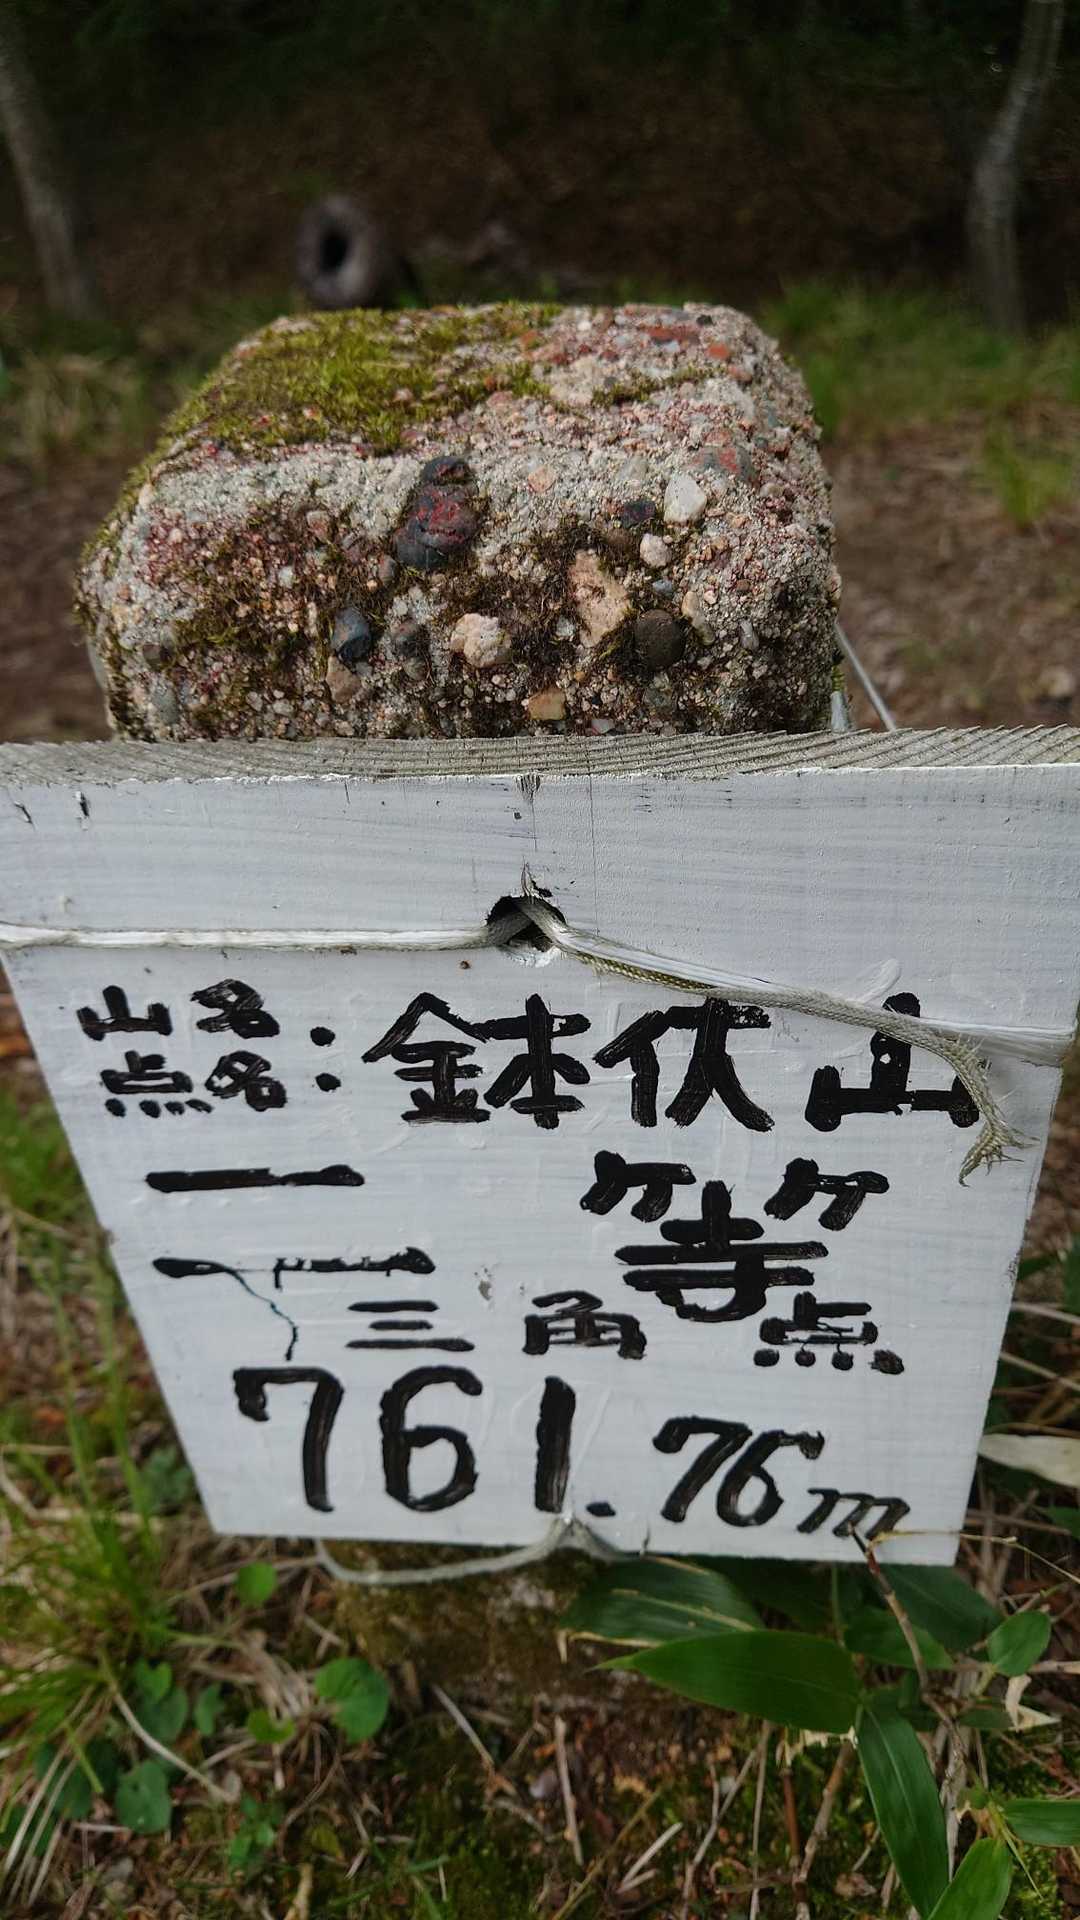 山名:鉢伏山
点名:
二等
三角点
761.76m